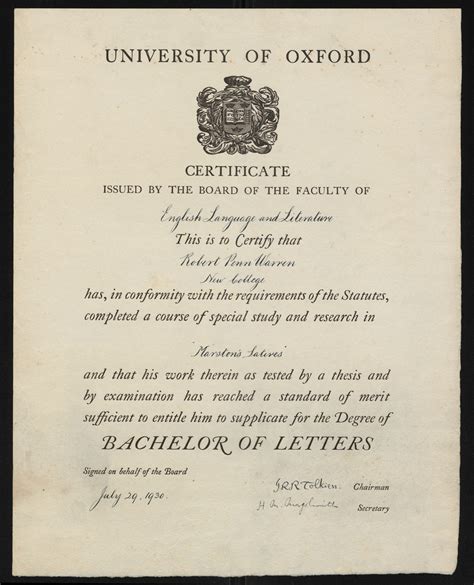 UNIVERSITY OF OXFORD
CERTIFICATE
ISSUED BY THE BOARD OF THE FACULTY OF
English Language and Literature
This is to Certify that
Robert Penn Warren
New College
has, in conformity with the requirements of the Statutes,
completed a course of special study and research in
'Marston's Satires'
and that his work therein as tested by a thesis and
by examination has reached a standard of merit
sufficient to entitle him to supplicate for the Degree of
BACHELOR OF LETTERS
Signed on behalf of the Board
July 29, 1930.
JRRTolkien. Chairman
Secretary